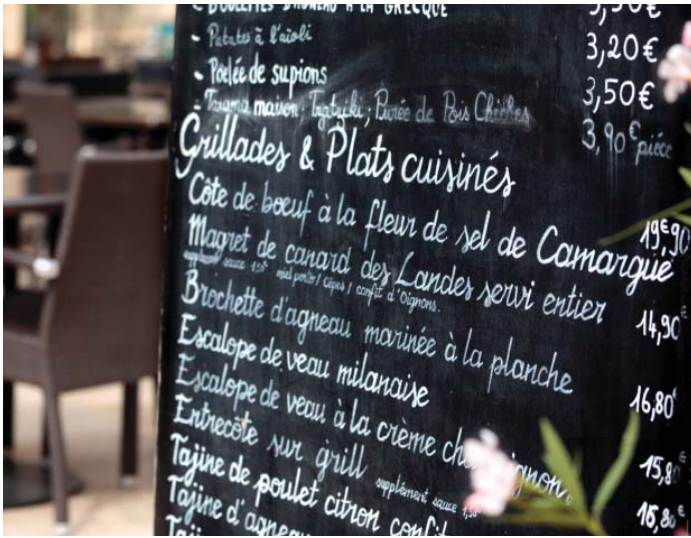 - BOULETTES D'AGNEAU A LA GRECQUE
- Patates à l'aïoli 3,20€
- Poêlée de supions 3,50€
- Tarama maison, Tzatziki, Purée de Pois Chiches 3,90€ pièce
Grillades & Plats cuisinés
Côte de boeuf à la fleur de sel de Camargue 19€90
Magret de canard des Landes servi entier 14,90
supplément sauce 1,50€ miel porto / cèpes / confit d'oignons.
Brochette d'agneau marinée à la planche 16,80€
Escalope de veau milanaise
Escalope de veau à la crème 15,8
Entrecôte sur grill supplément sauce 1,50 16,80€
Tajine de poulet citron confit
Tajine d'agneau